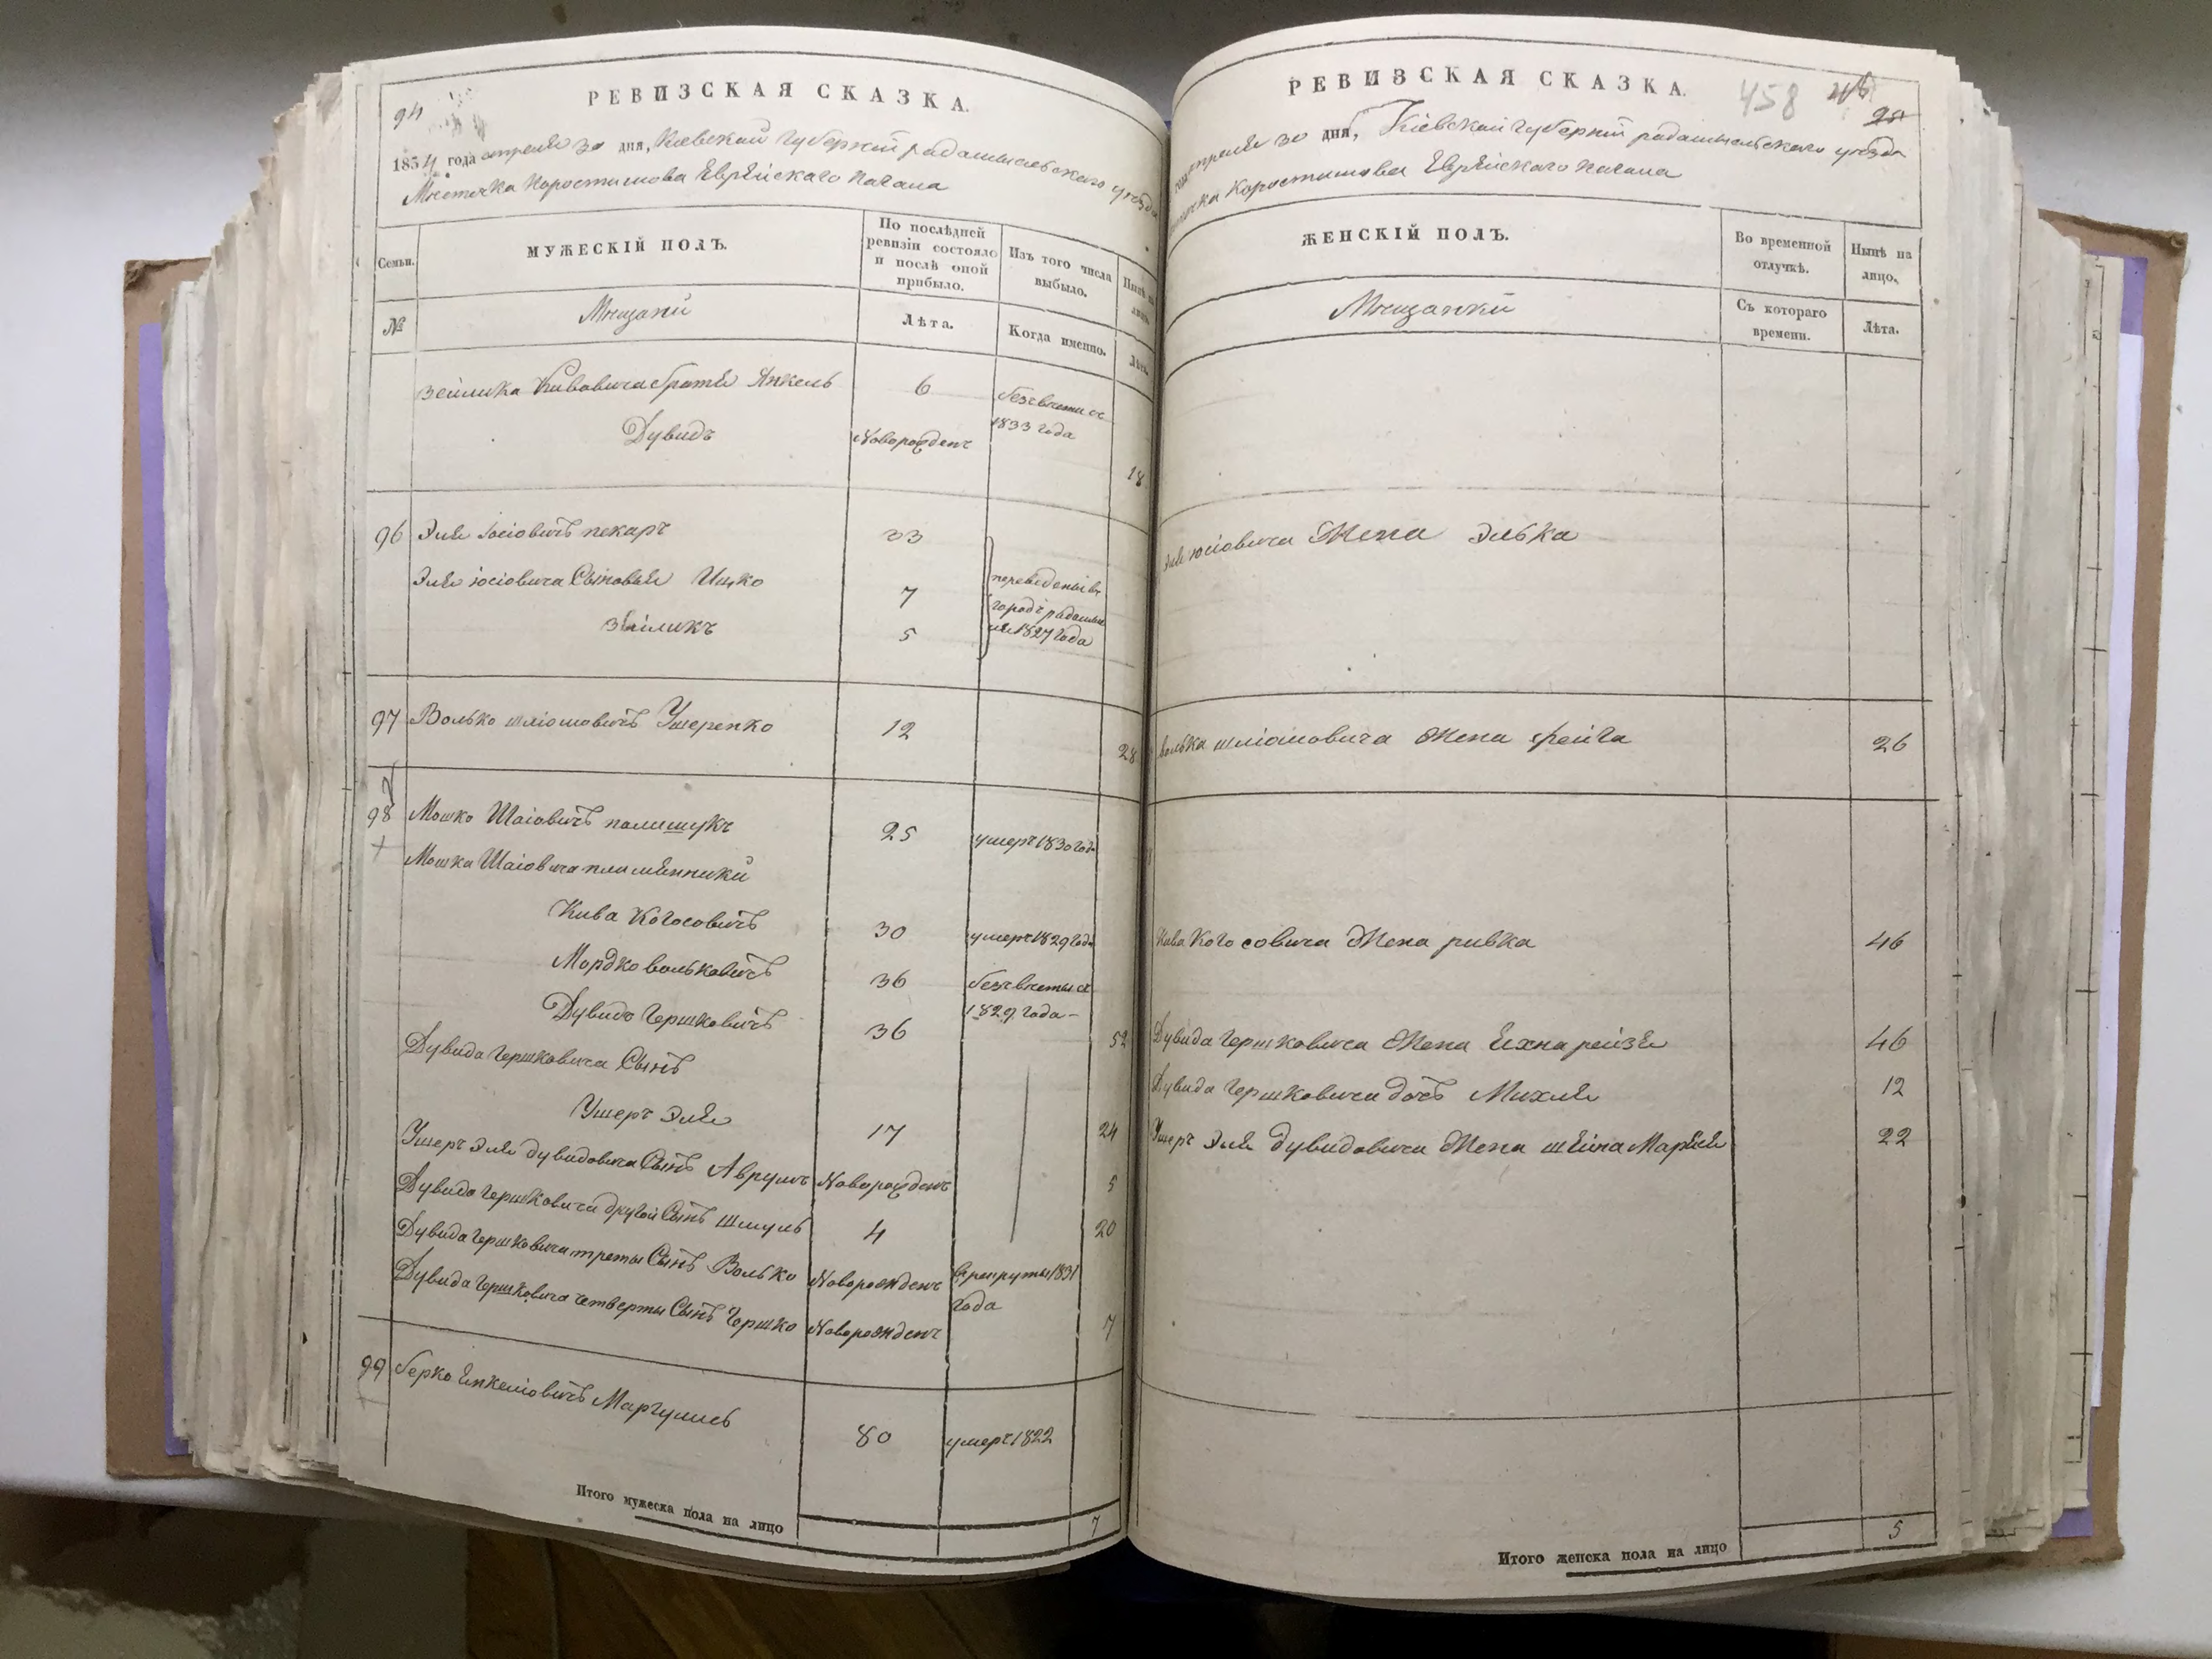 94
РЕВИЗСКАЯ СКАЗКА.
1834 года апреля 30 дня, Киевской Губерніи радомысльского уезда
Местечка Коростишова Еврейскаго Кагала
Семьи.
МУЖЕСКІЙ ПОЛЪ.
По послѣдней ревизіи состояло и послѣ оной прибыло.
Изъ того числа выбыло.
Нынѣ на лицо.
№
Мещани
Лѣта.
Когда именно.
Лѣта.
Зейлика Кивовича братья Янкель 6 безвести съ 1833 года
Дувидъ Новорожденъ 18
96 Эля Іосіовичъ пекаръ 33
Эля іосіовича Сыновья Ицко 7 переведены въ
Зейликъ 5 городъ радомысль 1827 года
97 Волько шліомовичъ Ушеренко 12 28
98 Мошко Шаіовичъ полищукъ 25 умеръ 1830 года
Мошка Шаіовича племенники
Кива Когосовичъ 30 умеръ 1829 года
Мордко вольковичъ 36 безъвести съ 1829 года
Дувидъ Гершковичъ 36 52
Дувида Гершковича Сынъ
Ушеръ Эля 17 24
Ушеръ Эля дувидовича Сынъ Аврумъ Новорожденъ 5
Дувида Гершковича другой Сынъ Шмуль 4 20
Дувида Гершковича треты Сынъ Волько Новорожденъ врекруты 1831 года
Дувида Гершковича четверты Сынъ Гершко Новорожденъ 7
99 берко Янкеліовичъ Маргулись 80 умеръ 1822
Итого мужеска пола на лицо 7
РЕВИЗСКАЯ СКАЗКА.
458
года апреля 30 дня, Кіевской Губерніи радомысльского уезда
местечка Коростишова Еврейскаго Кагала
ЖЕНСКІЙ ПОЛЪ.
Во временной отлучкѣ.
Нынѣ на лицо.
Мещанки
Съ котораго времени.
Лѣта.
Эля юсіовича Жена Элька
Волька шліомовича Жена фейга 26
Кива Когосовича Жена ривка 46
Дувида Гершковича Жена Ехна рейзя 46
Дувида Гершковича дочъ Михля 12
Ушеръ Эля дувидовича Жена шейна Маріея 22
Итого женска пола на лицо 5